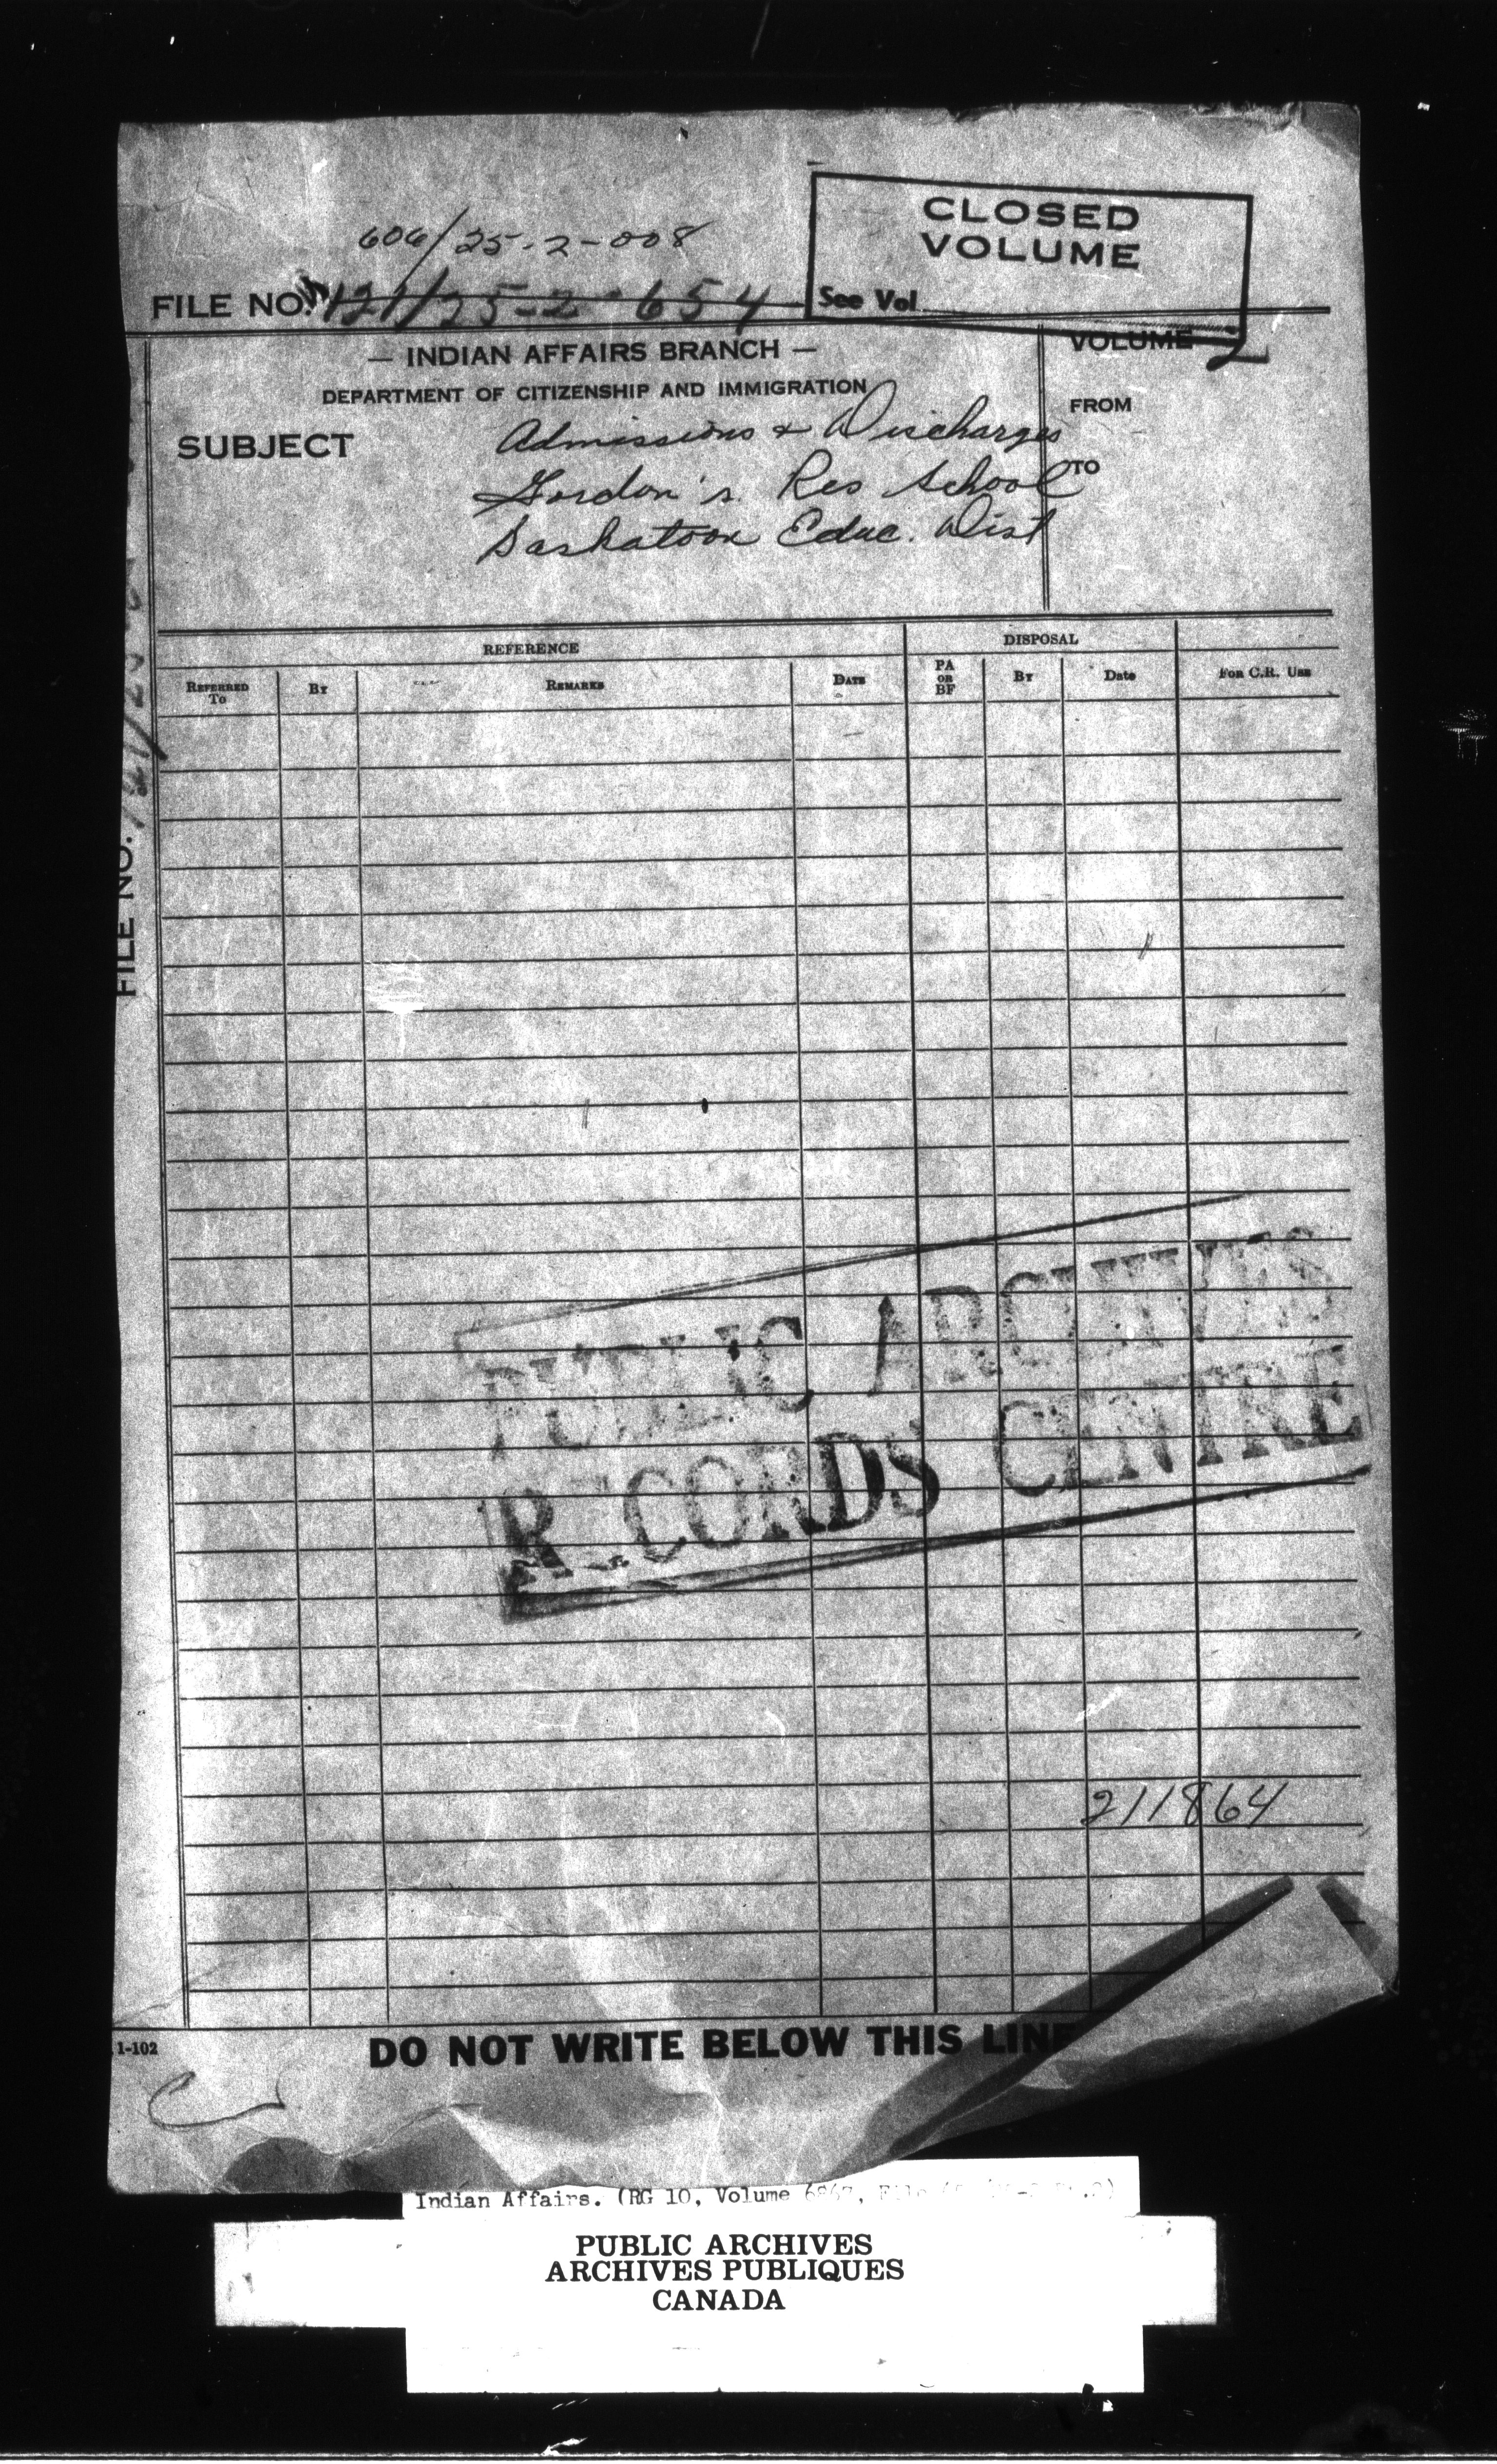 CLOSED
VOLUME
See Vol
606/25-2-008
FILE NO. 121/25-2-654
— INDIAN AFFAIRS BRANCH —
DEPARTMENT OF CITIZENSHIP AND IMMIGRATION
VOLUME 2
FROM
TO
SUBJECT
Admissions & Discharges
Gordon's Res School
Saskatoon Educ. Dist
FILE NO.
REFERENCE
DISPOSAL
REFERRED TO
BY
REMARKS
DATE
PA OR BF
BY
Date
FOR C.R. USE
PUBLIC ARCHIVES
RECORDS CENTRE
211864
1-102
DO NOT WRITE BELOW THIS LINE
Indian Affairs. (RG 10, Volume
PUBLIC ARCHIVES
ARCHIVES PUBLIQUES
CANADA